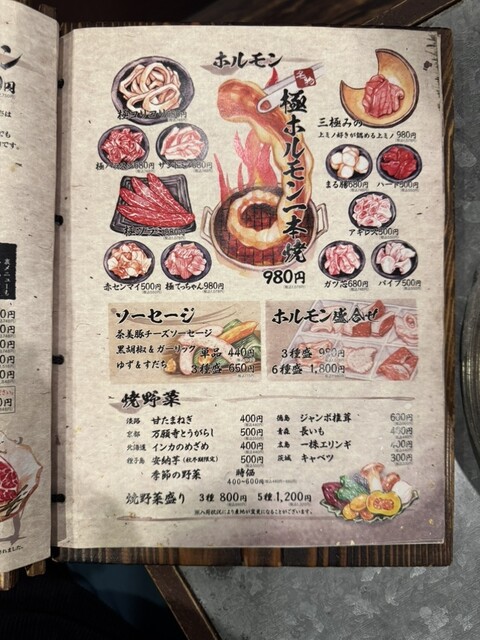 ホルモン
名物
極ホルモン一本焼
980円
三極みの
上ミノ好きが認める上ミノ 980円
まる腸680円
ハート500円
アキレス500円
ガツ芯680円
パイプ500円
赤センマイ500円
極てっちゃん980円
ソーセージ
茶美豚チーズソーセージ
黒胡椒&ガーリック
ゆず&すだち
単品 440円
3種盛 660円
ホルモン盛合せ
3種盛 980円
6種盛 1,800円
焼野菜
淡路 甘たまねぎ 400円
京都 万願寺とうがらし 500円
北海道 インカのめざめ 400円
種子島 安納芋(秋冬期限定) 500円
季節の野菜 時価
400~600円
徳島 ジャンボ椎茸 600円
青森 長いも
広島 一株エリンギ 400円
茨城 キャベツ 300円
焼野菜盛り 3種 800円 5種 1,200円
※入荷状況により産地が変更になることがございます。